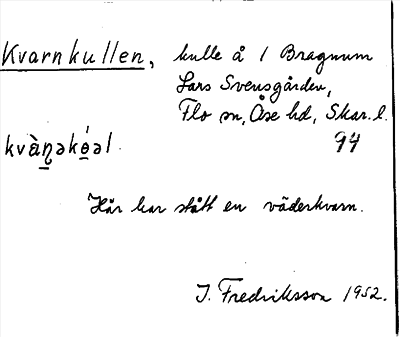 Kvarnkullen, kulle å 1 Bragnum
Lars Svensgården,
Flo sn, Åse hd, Skar. l.
kvàɳəkö́əl 94
Här har stått en väderkvarn.
J. Fredriksson 1952.